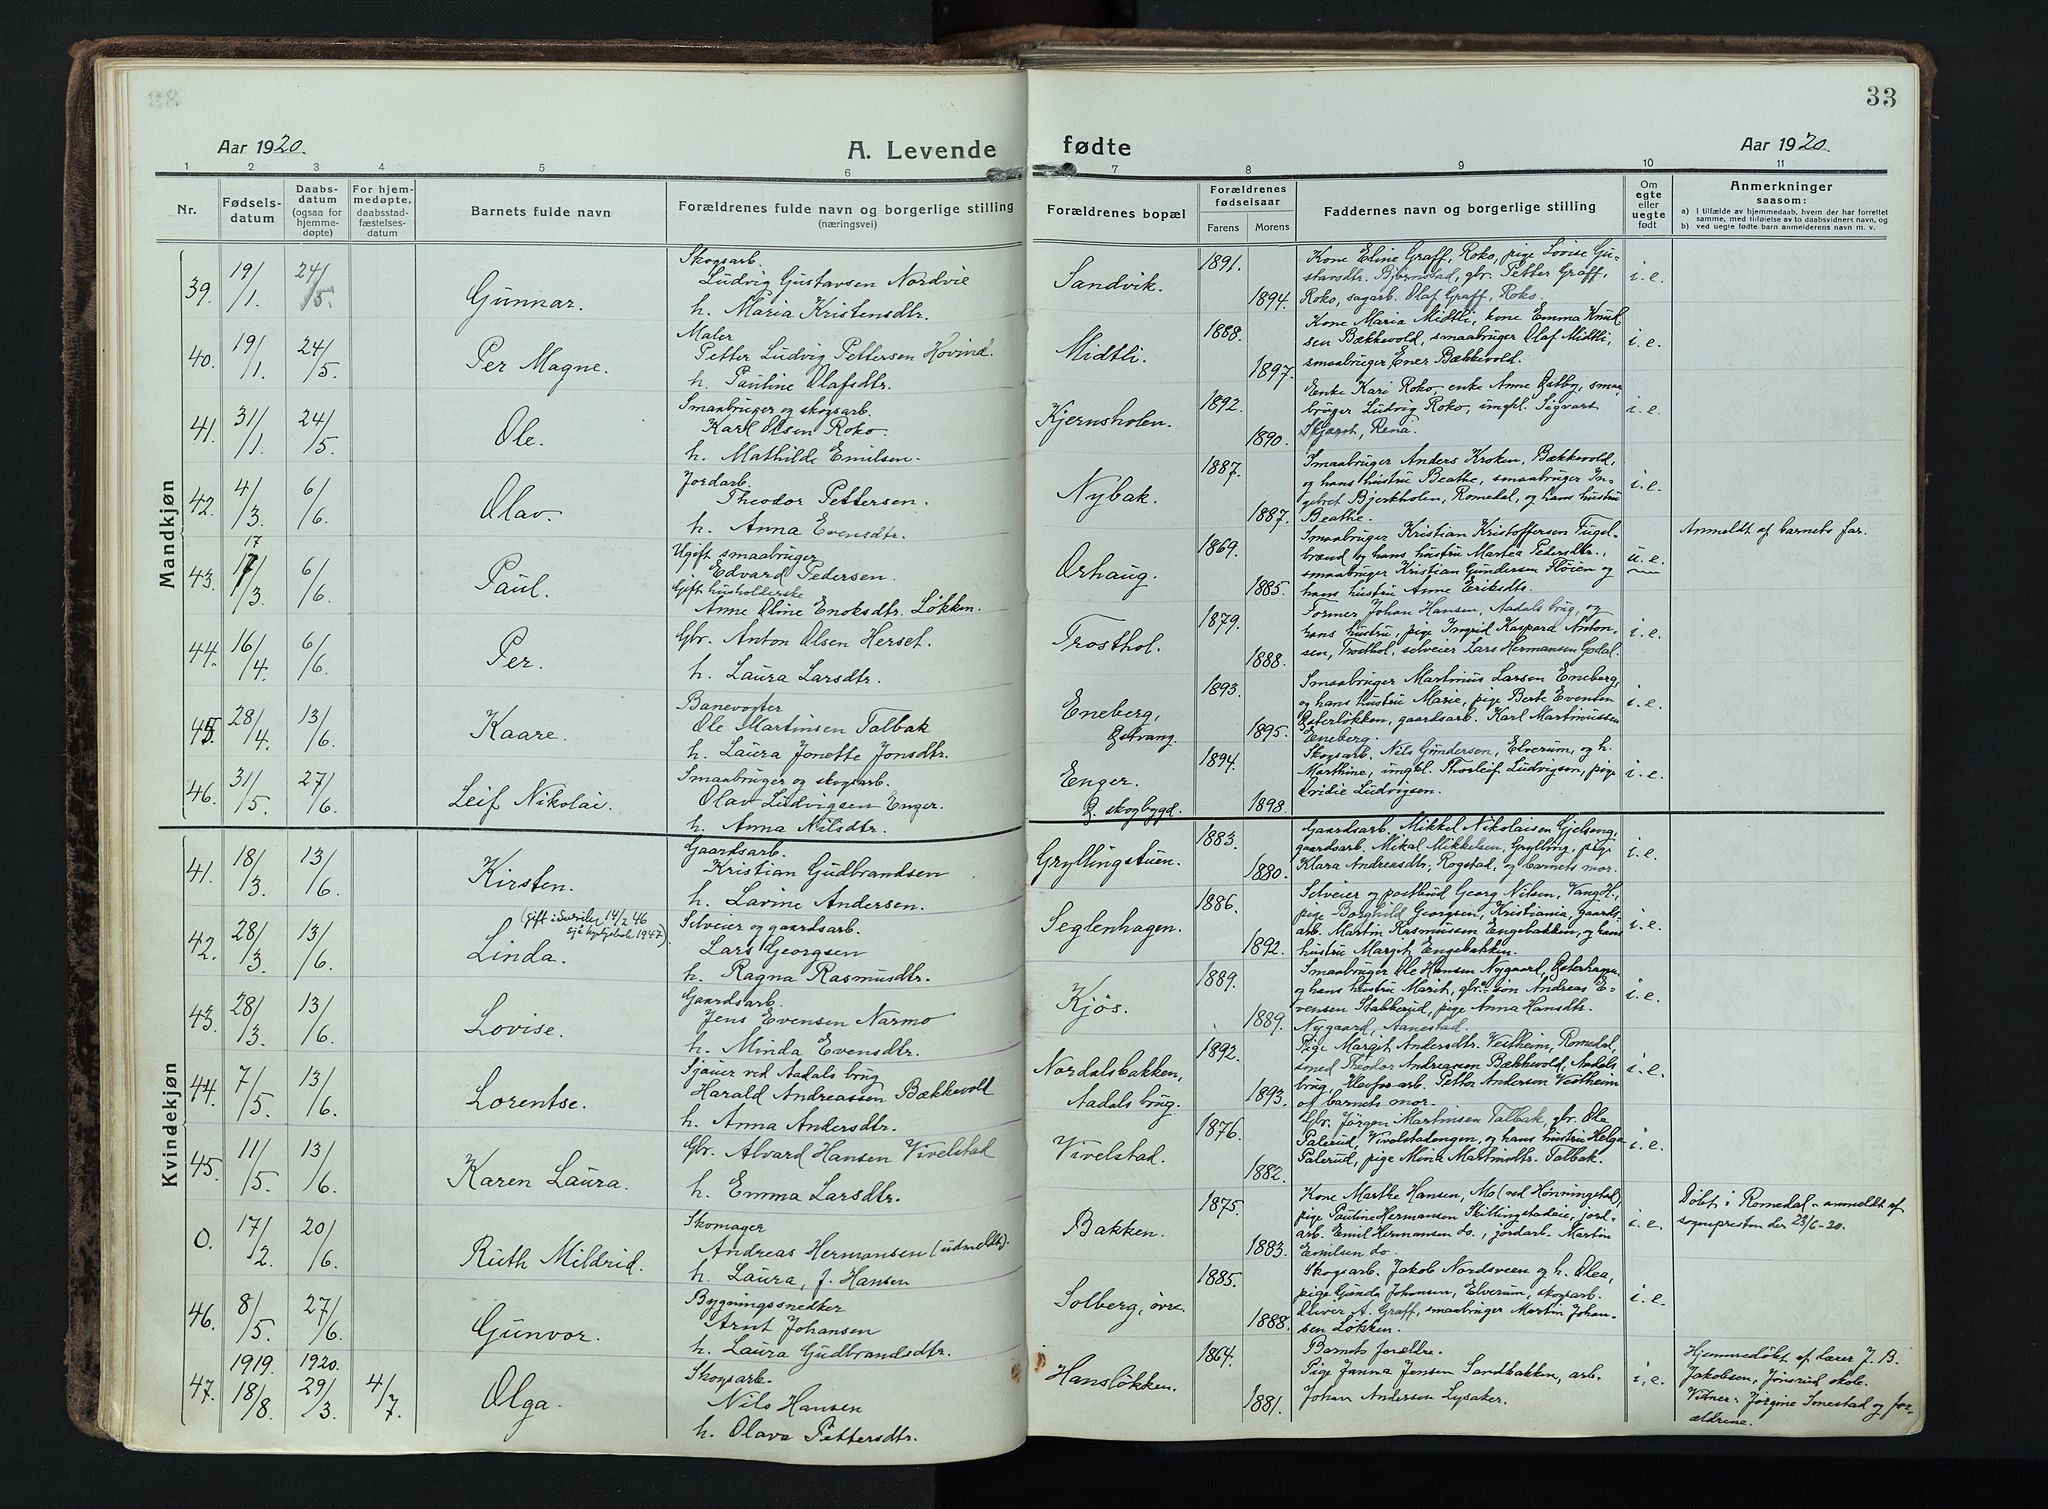 33
Aar 1920.
A. Levende
fødte
Aar 1920.
1 2 3 4 5 6 7 8 9 10 11
Nr.
Fødsels-
datum
Daabs-
datum
(ogsaa for
hjemme-
døpte)
For hjem-
medøpte,
daabsstad-
fæstelses-
datum
Barnets fulde navn
Forældrenes fulde navn og borgerlige stilling
(næringsvei)
Forældrenes bopæl
Forældrenes
fødselsaar
Farens Morens
Faddernes navn og borgerlige stilling
Om
egte
eller
uegte
født
Anmerkninger
saasom:
a) i tilfælde av hjemmedaab, hvem der har forrettet
samme, med tilføielse av to daabsvidners navn, og
b) ved uegte fødte barn anmelderens navn m. v.
Mandkjøn
39. 19/1. 24/5. Gunnar.
Skogsarb.
Ludvig Gustavsen Nordvie
h. Maria Kristensdtr.
Sandvik. 1891. 1894.
Kone Eline Graff, Roko, pige Lovise Gu-
stavsdtr. Bjørnstad, gbr. Petter Graff,
Roko, sagarb. Olaf Graff, Roko.
i. e.
40. 19/1. 24/5. Per Magne.
Maler
Petter Ludvig Pettersen Hovind.
h. Pauline Olafsdtr.
Midtli. 1888. 1897.
Kone Maria Midtli, kone Emma Knud-
sen Bækkevold, smaabruger Olaf Midtli,
smaabruger Ener Bækkevold.
i. e.
41. 31/1. 24/5. Ole.
Smaabruger og skogsarb.
Karl Olsen Roko.
h. Mathilde Emilsen.
Kjernsholen. 1892. 1890.
Enke Kari Roko, enke Anne Østby, smaa-
bruger Ludvig Roko, ungkl. Sigvart
Rena.
i. e.
42. 4/3. 6/6. Olav.
Jordarb.
Theodor Pettersen.
h. Anna Evensdtr.
Nybak. 1887. 1887.
Smaabruger Anders Kroken, Bækkevold,
og hans hustru Beathe, smaabruger In-
gebret Bjerkholen, Romedal, og hans hustru
Beathe.
i. e.
43. 17 17/3. 6/6. Paul.
Ugift smaabruger
Edvard Pedersen.
Gift husholderske
Anne Oline Enoksdtr. Løkken.
Orhaug. 1869. 1885.
Smaabruger Kristian Kristoffersen Fugl-
brænd og hans hustru Martea Pedersdtr.,
smaabruger Kristian Gundersen Fløien og
hans hustru Anne Eriksdtr.
u. e.
Anmeldt af barnets far.
44. 16/4. 6/6. Per.
Gbr. Anton Olsen Herset.
h. Laura Larsdtr.
Trosthol. 1879. 1888.
Former Johan Hansen, Aadals brug, og
hans hustru, pige Ingrid Kaspara Anton-
sen, Trosthol, selveier Lars Hermansen Godal.
i. e.
45. 28/4. 13/6. Kaare.
Banevogter
Ole Martinsen Talbak
h. Laura Jonette Jonsdtr.
Eneberg,
Østvang. 1893. 1895.
Smaabruger Martinius Larsen Eneberg,
og hans hustru Marie, pige Berte Eventen
Østerløkken, gaardsarb. Karl Martinussen
Eneberg.
i. e.
46. 31/5. 27/6. Leif Nikolai.
Smaabruger og skogsarb.
Olav Ludvigsen Enger.
h. Anna Nilsdtr.
Enger.
Ø. skogbygd. 1894. 1898.
Skogsarb. Nils Gundersen, Elverum, og h.
Marthine, ungkl. Thorleif Ludvigsen, pige
Ovidie Ludvigsen.
i. e.
Kvindekjøn
41. 18/3. 13/6. Kirsten.
Gaardsarb.
Kristian Gudbrandsen
h. Lavine Andersen.
Gryllingstuen. 1883. 1880.
Gaardsarb. Mikkel Nikolaisen Gjelseng,
gaardsarb. Mikal Mikkelsen, Grylling, pige
Klara Andreasdtr, Rogstad, og barnets mor.
i. e.
42. 28/3. 13/6. Linda.
(gift i 14/2 46
sjå 1947).
Selveier og gaardsarb.
Lars Georgsen
h. Ragna Rasmusdtr.
Seglenhagen. 1886. 1892.
Selveier og postbud Georg Nilsen, Vang H.,
pige Borghild Georgsen, Kristiania, gaards-
arb. Martin Rasmussen Engebakken, og hans
hustru Margit Engebakken.
i. e.
43. 28/3. 13/6. Lovise.
Gaardsarb.
Jens Evensen Narmo
h. Minda Evensdtr.
Kjøs. 1889. 1889.
Smaabruger Ole Hansen Nygaard, Østerhagen,
og hans hustru Marit, gbr. søn Andreas E-
vensen Stabberud, pige Anna Hansdtr.
Nygaard, Aanestad.
i. e.
44. 7/5. 13/6. Lorentse.
Sjauer ved Aadals brug
Harald Andreassen Bækkevold
h. Anna Andersdtr.
Nordalsbakken,
Aadals brug. 1892. 1893.
Pige Margit Andersdtr. Vestheim, Romedal,
smed Theodor Andreassen Bækkevold, Aadals
brug, Petter Andersen Vestheim
og barnets mor.
i. e.
45. 11/5. 13/6. Karen Laura.
Gbr. Alvard Hansen Vivelstad
h. Emma Larsdtr.
Vivelstad. 1876. 1882.
Gbr. Jørgen Martinsen Talbak, gbr. Ole
Palerud, Vivelstadengen, og hans hustru Helga
Palerud, pige Mina Martinsdtr. Talbak.
i. e.
0. 17/2. 20/6. Ruth Mildrid.
Skomager
Andreas Hermansen (utmeldt).
h. Laura, f. Hansen
Bakken. 1875. 1883.
Kone Marthe Hansen, Mo (ved Hønningstad),
pige Pauline Hermansen Skillingstadeie, jord-
arb. Emil Hermansen do., jordarb. Martin
Emilsen do.
i. e.
Døbt i Romedal – anmeldt af
sognepresten der 23/6–20.
46. 8/5. 27/6. Gunvor.
Bygningssnedker
Arnt Johansen
h. Laura Gudbrandsdtr.
Solberg, øvre. 1885. 1888.
Skogsarb. Jakob Nordsveen og h. Olea,
pige Gunda Johansen, Elverum, skogsarb.
Oliver A. Graff, smaabruger Martin Johan-
sen Løkken.
i. e.
47. 1919. 18/8. 1920. 29/3. 4/7. Olga.
Skogsarb.
Nils Hansen
h. Olava Pettersdtr.
Hansløkken. 1864. 1881.
Barnets forældre.
Pige Janna Jensen Sandbakken, arb.
Johan Andersen Lysaker.
i. e.
Hjemmedøbt af lærer J. B.
Jakobsen, Jønsrud skole.
Vitner: Jørgine Imestad og for-
ældrene.